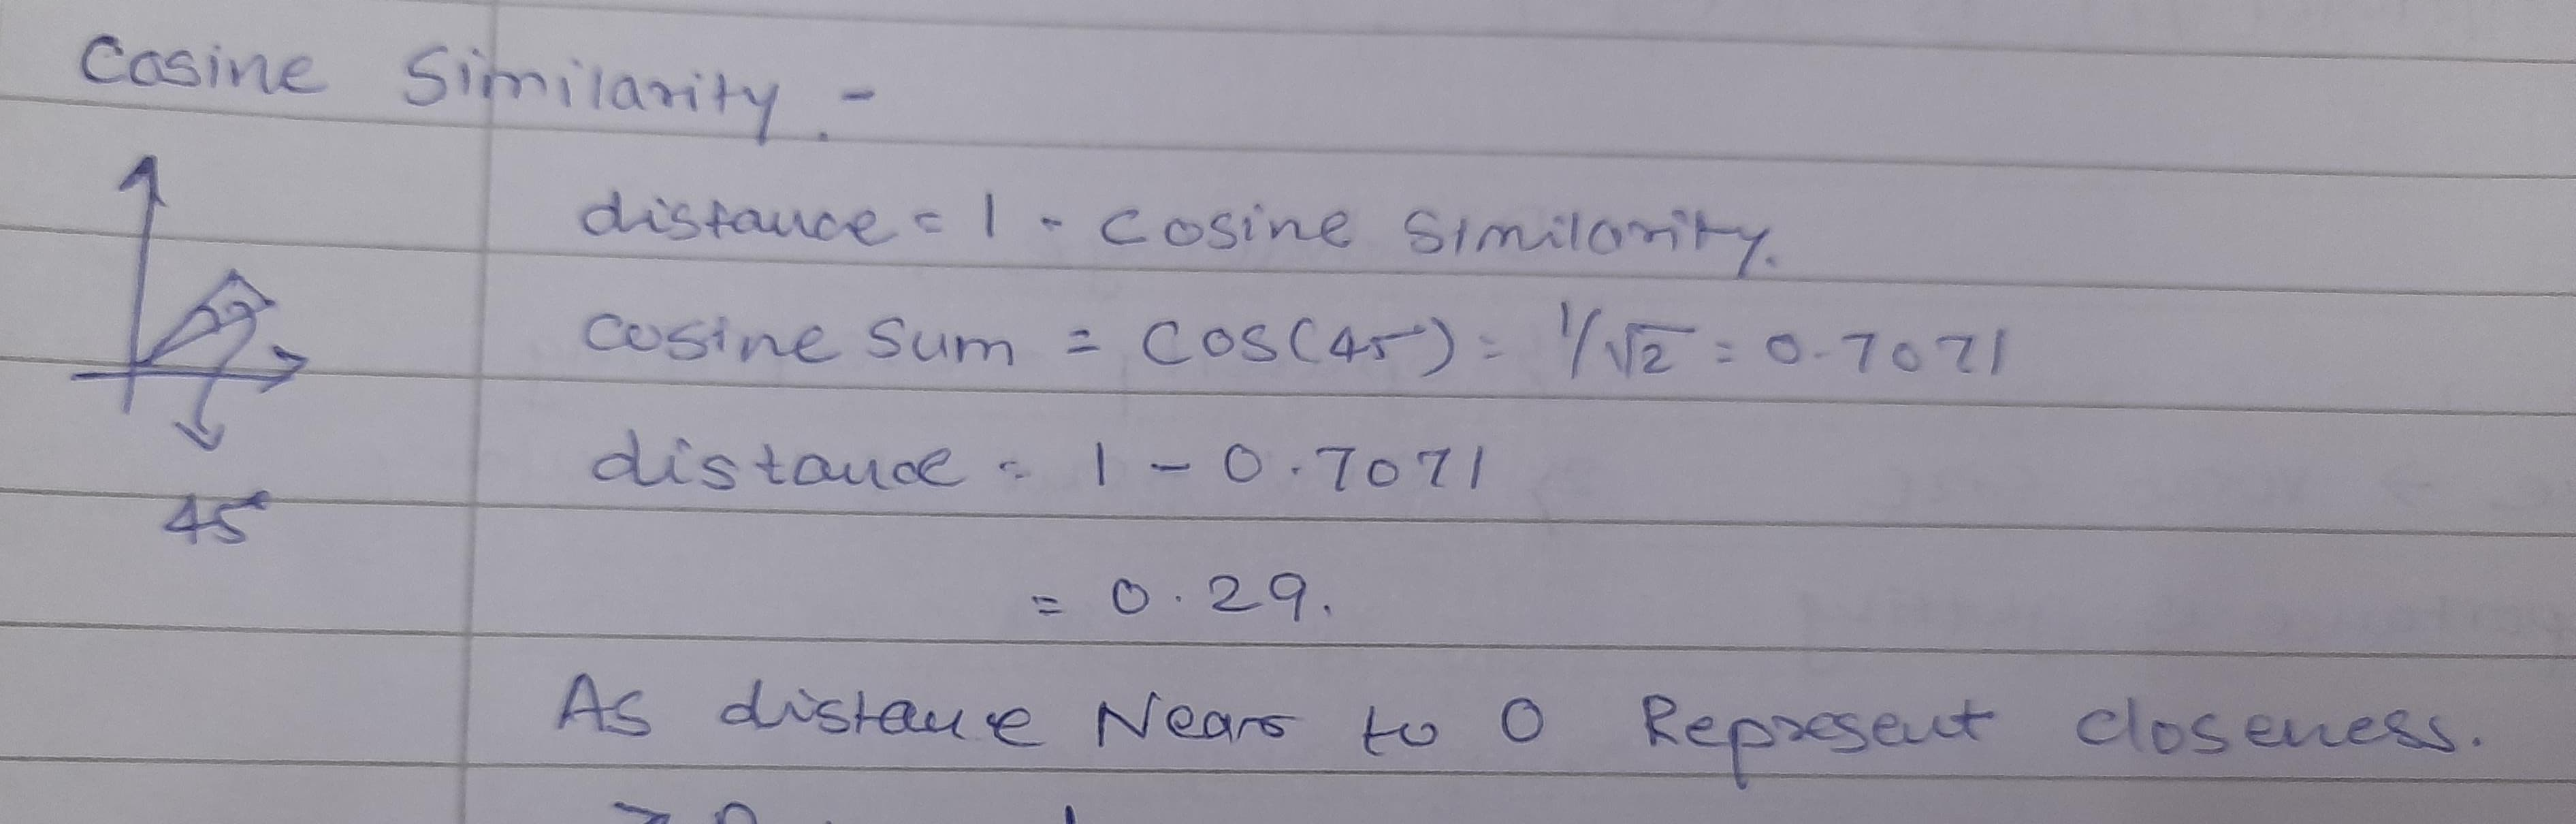 Cosine Similarity :-
distance = 1 - Cosine Similarity.
cosine Sum = Cos(45°) = 1/√2 = 0.7071
distance = 1 - 0.7071
45°
= 0.29.
As distance Near to 0 Represent closeness.